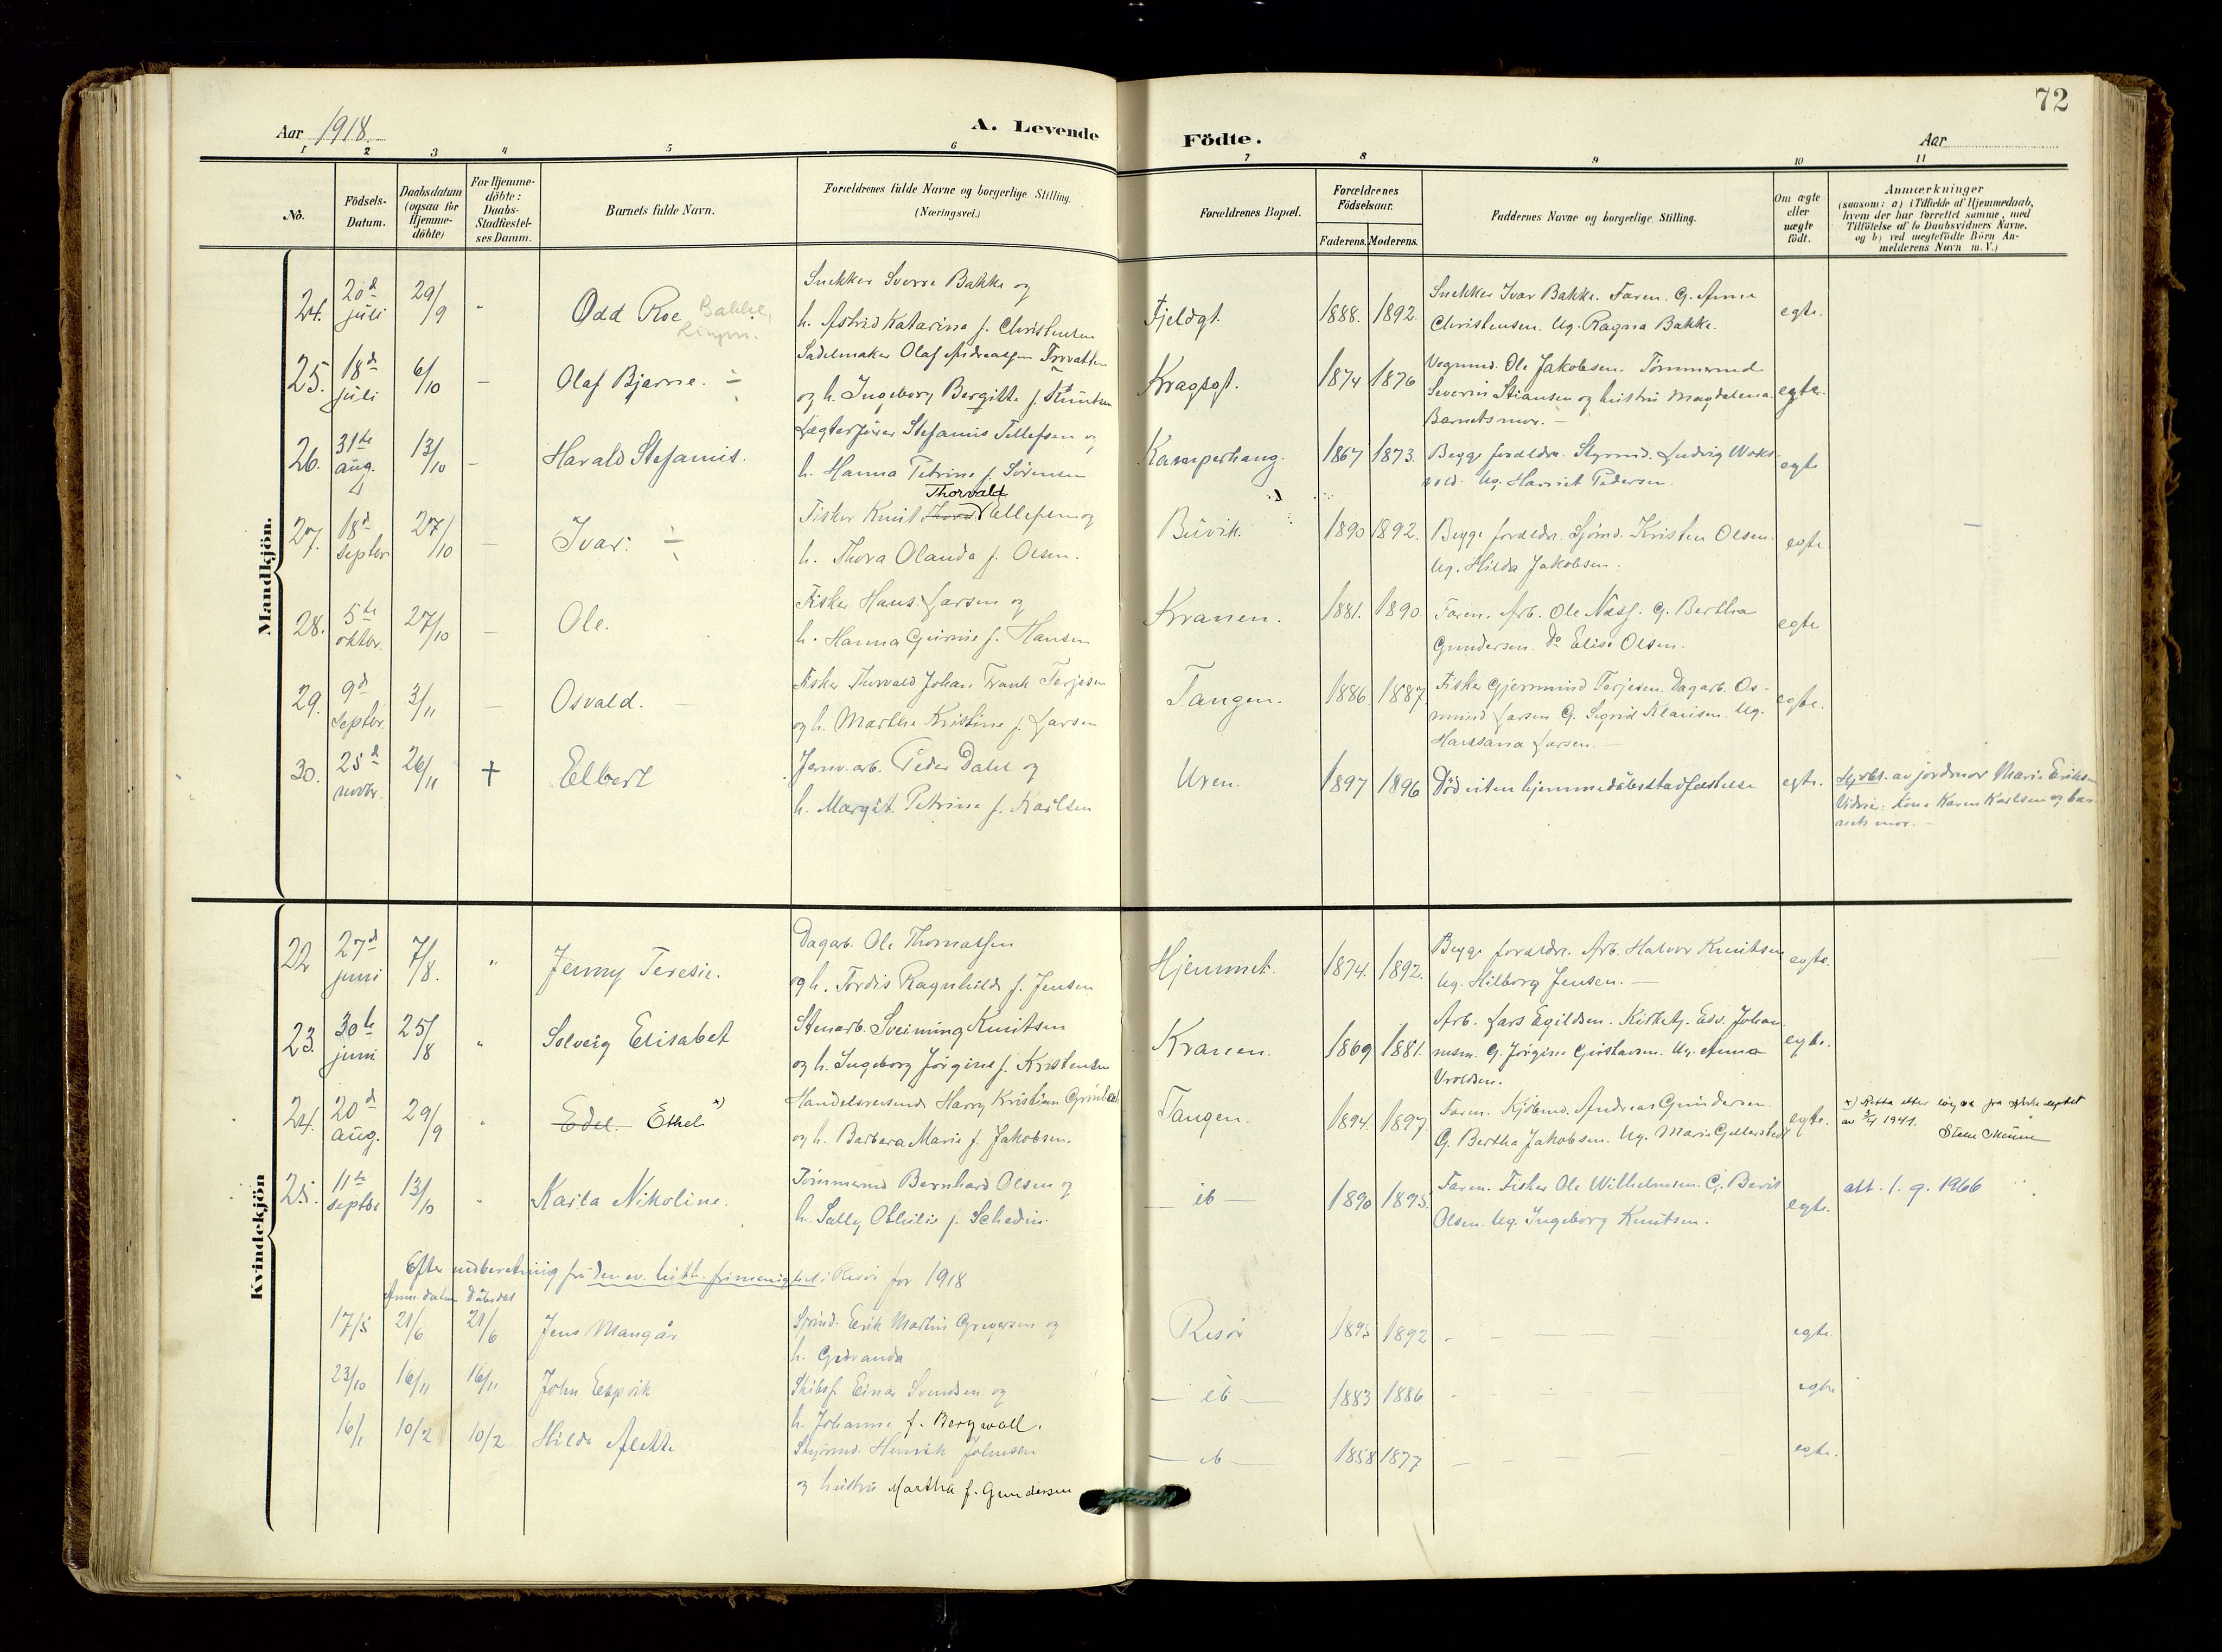 72
Aar 1918.
A. Levende Födte.
Aar
1 2 3 4 5 6 7 8 9 10 11
No.
Födsels-Datum.
Daabsdatum (ogsaa for Hjemme-döbte)
For Hjemme-döbte: Daabs-Stadfæstel-ses Datum.
Barnets fulde Navn.
Forældrenes fulde Navne og borgerlige Stilling. (Næringsvei.)
Forældrenes Bopæl.
Forældrenes Födselsaar.
Faderens. Moderens.
Faddernes Navne og borgerlige Stilling.
Om ægte eller uægte födt.
Anmærkninger
(saasom: a) i Tilfælde af Hjemmedaab,
hvem der har forrettet samme, med
Tilföielse af to Daabsvidners Navne.
og b) ved uægtefödte Börn An-
melderens Navn m. V.)
Mandkjön.
24. 20d juli 29/9 " Odd Roe Bakke,
Snekker Sverre Bakke og
h. Astrid Katarina f. Christensen
Fjeldgt. 1888. 1892.
Snekker Ivar Bakke. Faren. G. Anna
Christensen. Ug. Ragna Bakke.
egte.
25. 18d juli 6/10 – Olaf Bjarne. ÷
Sadelmaker Olaf Andreassen
og h. Ingeborg Bergitte f. Knutsen
Kragsgt. 1874 1876
Vognmd. Ole Jakobsen. Tømmermd
Severin Stiansen og hustru Magdalena.
Barnets mor. –
egte.
26. 31te aug. 13/10 – Harald Stefanus.
Lægterfører Stefanus Tellefsen og
h. Hanna Petrine f. Sørensen
Kamperhaug. 1867 1873.
Begge forældre. Styrmd. Ludvig
Ug. Harriet Pedersen.
egte
27. 18d septbr. 27/10 – Ivar. ÷
Thorvald
Fisker Knut Ellefsen og
h. Thora Olanda f. Olsen.
Buvik. 1890 1892.
Begge forældre. Sjømd. Kristen Olsen.
Ug. Hilda Jakobsen.
egte
28. 5te oktbr. 27/10 – Ole.
Fisker Hans Larsen og
h. Hanna Gurine f. Hansen
Kranen. 1881. 1890.
Faren. Arb. Ole Næss. G. Bertha
Gundersen. Do Elise Olsen.
egte
29. 9d septbr. 3/11 – Osvald. –
Fisker Thorvald Johan Frank Terjesen
og h. Marthe Kristine f. Larsen
Tangen. 1886. 1887.
Fisker Gjermund Terjesen. Dagarb. Os-
mund Larsen G. Sigrid Klausen. Ug.
Hanssana Larsen. –
egte.
30. 25d novbr. 26/11 + Elbert
Jernv.arb. Peder Dahl og
h. Margit Petrine f. Karlsen
Uren. 1897 1896
Død uten hjemmedåbsstadfestelse
egte.
Hjdbt. av jordmor Marie Eriksen
Vidner: Lina Karen Karlsen og bar-
nets mor. –
Kvindekjön
22 27d juni 7/8. " Jenny Teresie.
Dagarb. Ole Thomassen
og h. Tordis Ragnhild f. Jensen
Hjemmet. 1874. 1892.
Begge forældre. Arb. Halvor Knutsen
Ug. Hilborg Jensen. –
egte.
23. 30te juni 25/8 " Solveig Elisabet
Stenarb. Sveinung Knutsen
og h. Ingeborg Jørgine f. Kristensen
Kranen. 1869 1881.
Arb. Lars Egildsen. Kirketj. Edv. Johan-
nesen. G. Jørgine Gustavsen. Ug. Anna
Vroldsen.
egte.
24. 20d aug. 29/9 " Edel. Ethel x)
Handelsreisende Harry Kristian
og h. Barbara Marie f. Jakobsen.
Tangen. 1894. 1897.
Faren. Kjøbmd. Andreas Gundersen.
G. Bertha Jakobsen. Ug. Marie Gellerstedt
egte.
x) Retta etter løyve fra
av 3/4 1941.
25. 11te septbr 13/10 " Karla Nikoline.
Tømmermd Bernhard Olsen og
h. Sally Othilie f. Schedin.
– ib – 1890 1895.
Faren. Fisker Ole Wilhelmsen. G. Berit
Olsen. Ug. Ingeborg Knutsen.
egte.
att. 1.9.1966
Efter indberetning fra den ev. luth. frimenighet i Risør for 1918
Anm. datum Dåbsdat
17/5 21/6 21/6 Jens Mangår
Sjømd. Erik Martin Gregersen og
h. Gudranda
Risør 1895 1892 – egte.
23/10 16/11 16/11 John Espvik
Skibsf. Einar Svendsen og
h. Johanne f. Bergwall.
– ib – 1883 1886 – egte
16/1 10/2 10/2 Hilda Alette
Styrmd. Henrik Johnsen
og hustru Martha f. Gundersen
– ib – 1858 1877 – egte.